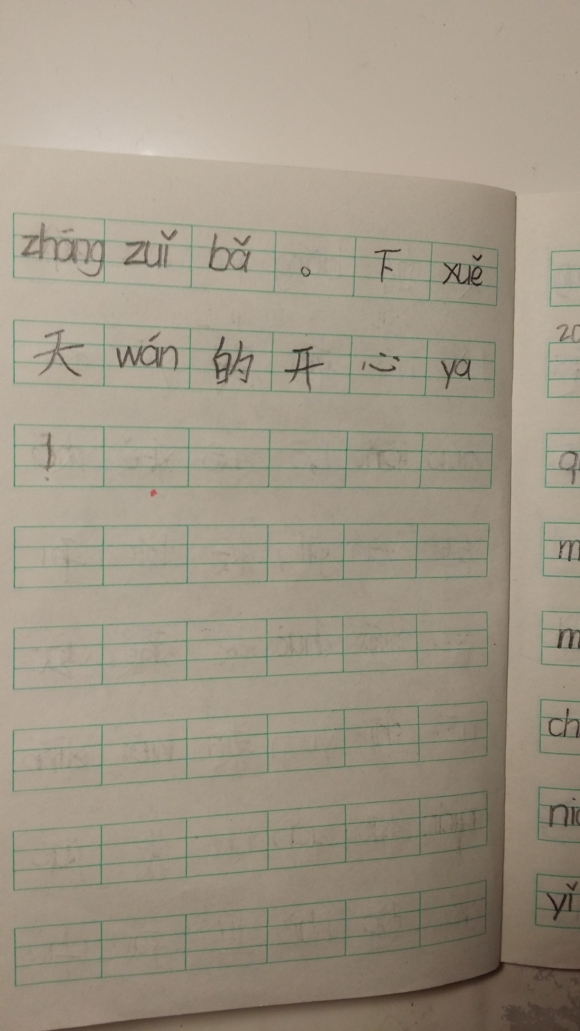 zhāng zuǐ bā 。 下 xuě
天 wán 的 开 心 ya
！
20
q
m
m
ch
yǐ